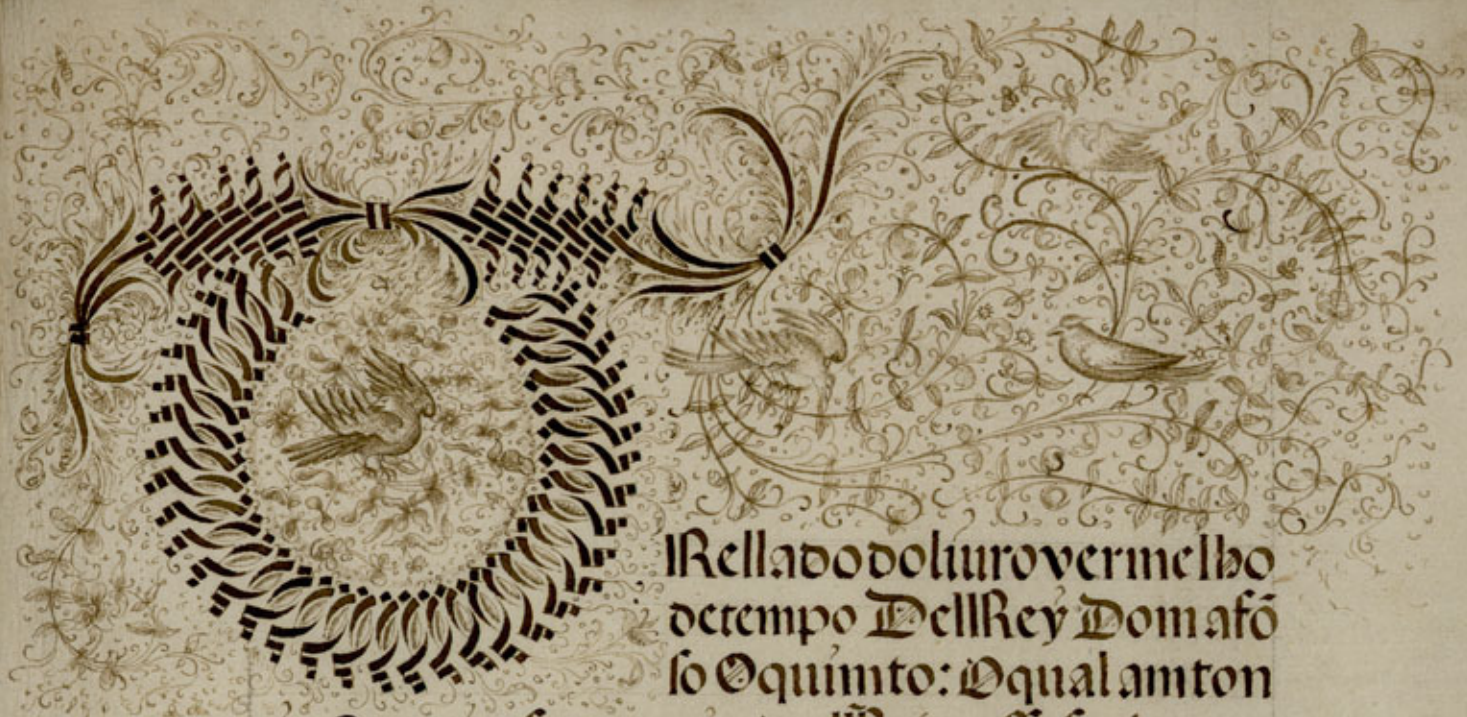 TRellado do liuro vermelho
de tempo DellRey Dom afõ
so O quimto: O qual amton